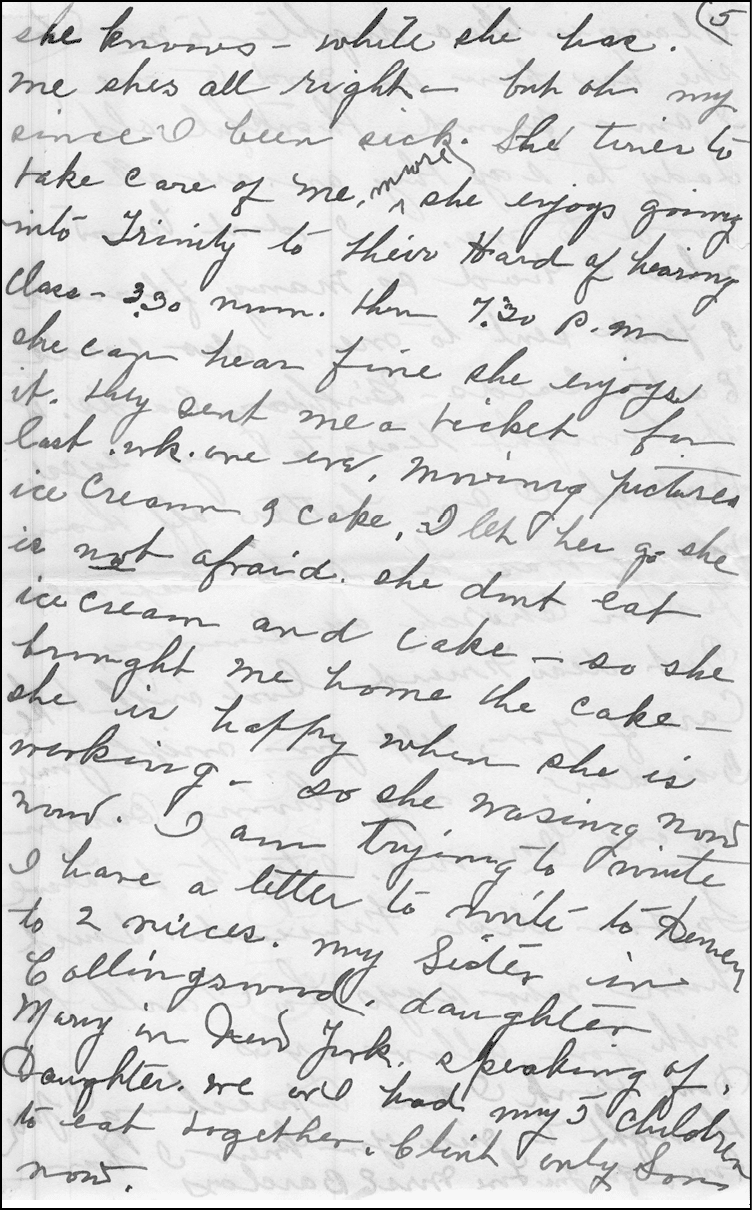 (5
she knows - while she has.
me shes all right - but oh my
since I been sick. She tries to
take care of me, more she enjoys going
into Trinity to their Hard of hearing
Class - 3.30 then 7.30 P.m
she can hear fine she enjoys
it. they sent me a ticket for
last .wk. one eve, moving pictures
ice Cream & cake, I let her go she
is not afraid. she dont eat
ice cream and cake - so she
brought me home the cake -
she is happy when she is
working - so she now
now. I am trying to write
I have a letter to write to Denver
to 2 nieces. my Sister in
Collingswood. daughter
Mary in New York. speaking of.
Daughter. we all had my 5 Children
to eat together. Clint only Son
now.